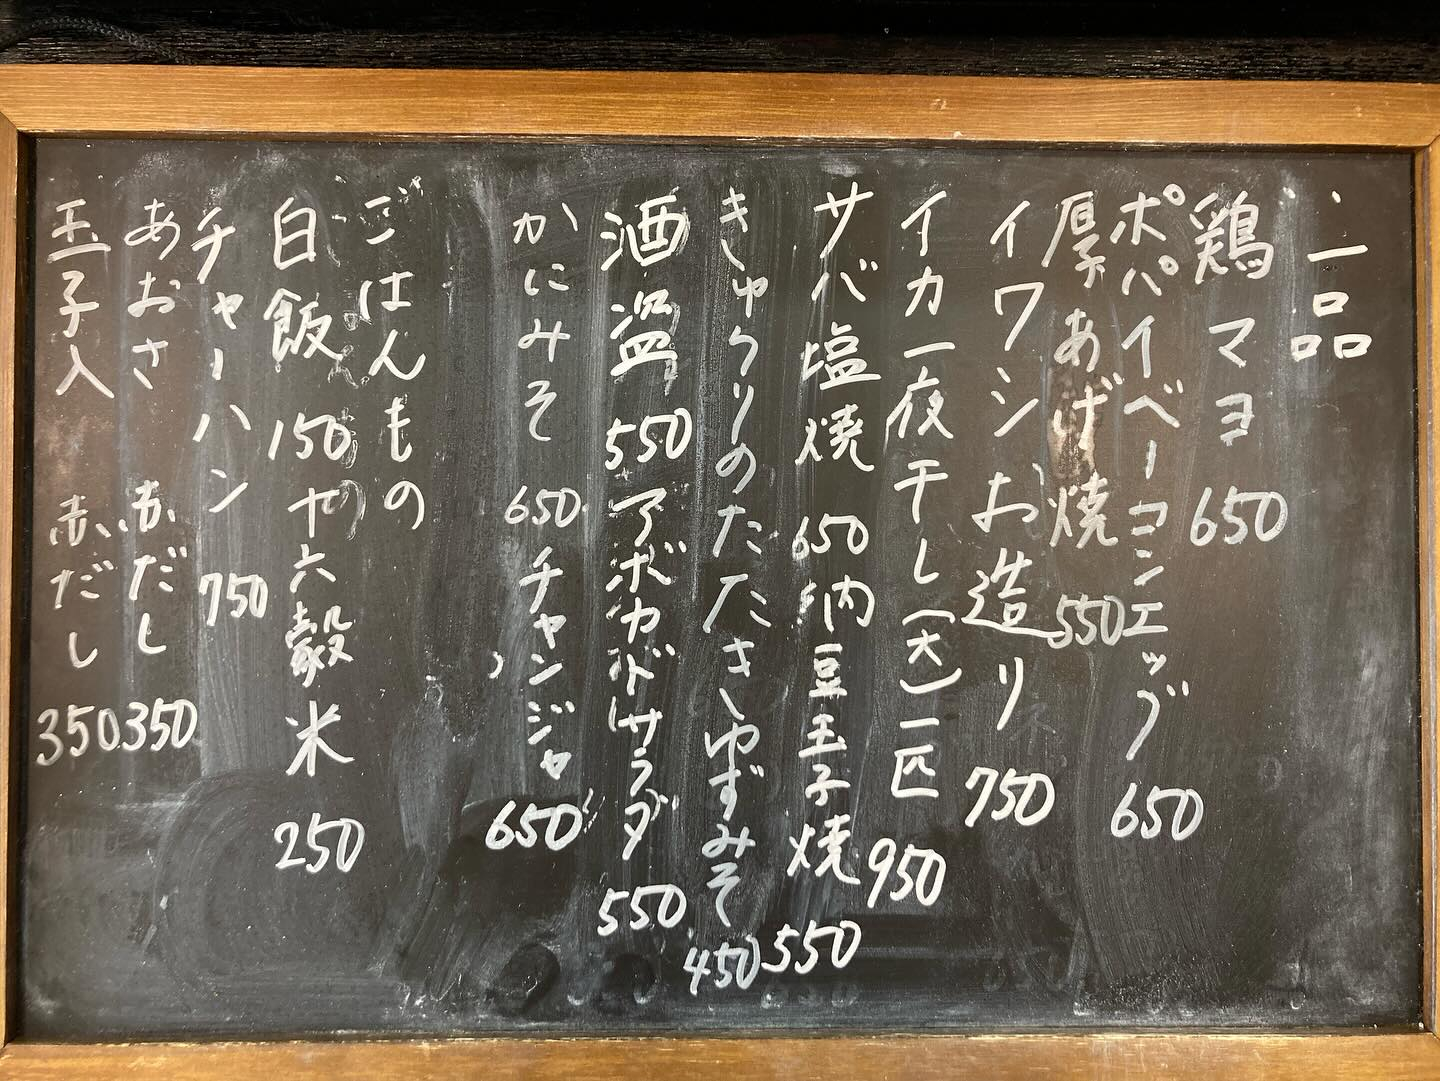 ・一品
鶏マヨ 650
ポパイベーコンエッグ 650
厚あげ焼 550
イワシお造り 750
イカ一夜干し(大)一匹 950
サバ塩焼 650 納豆玉子焼 550
きゅうりのたたきゆずみそ 450
酒盗 550 アボカドサラダ 550
かにみそ 650 チャンジャ 650
ごはんもの
白飯 150 十六穀米 250
チャーハン 750
あおさ 赤だし 350
玉子入 赤だし 350